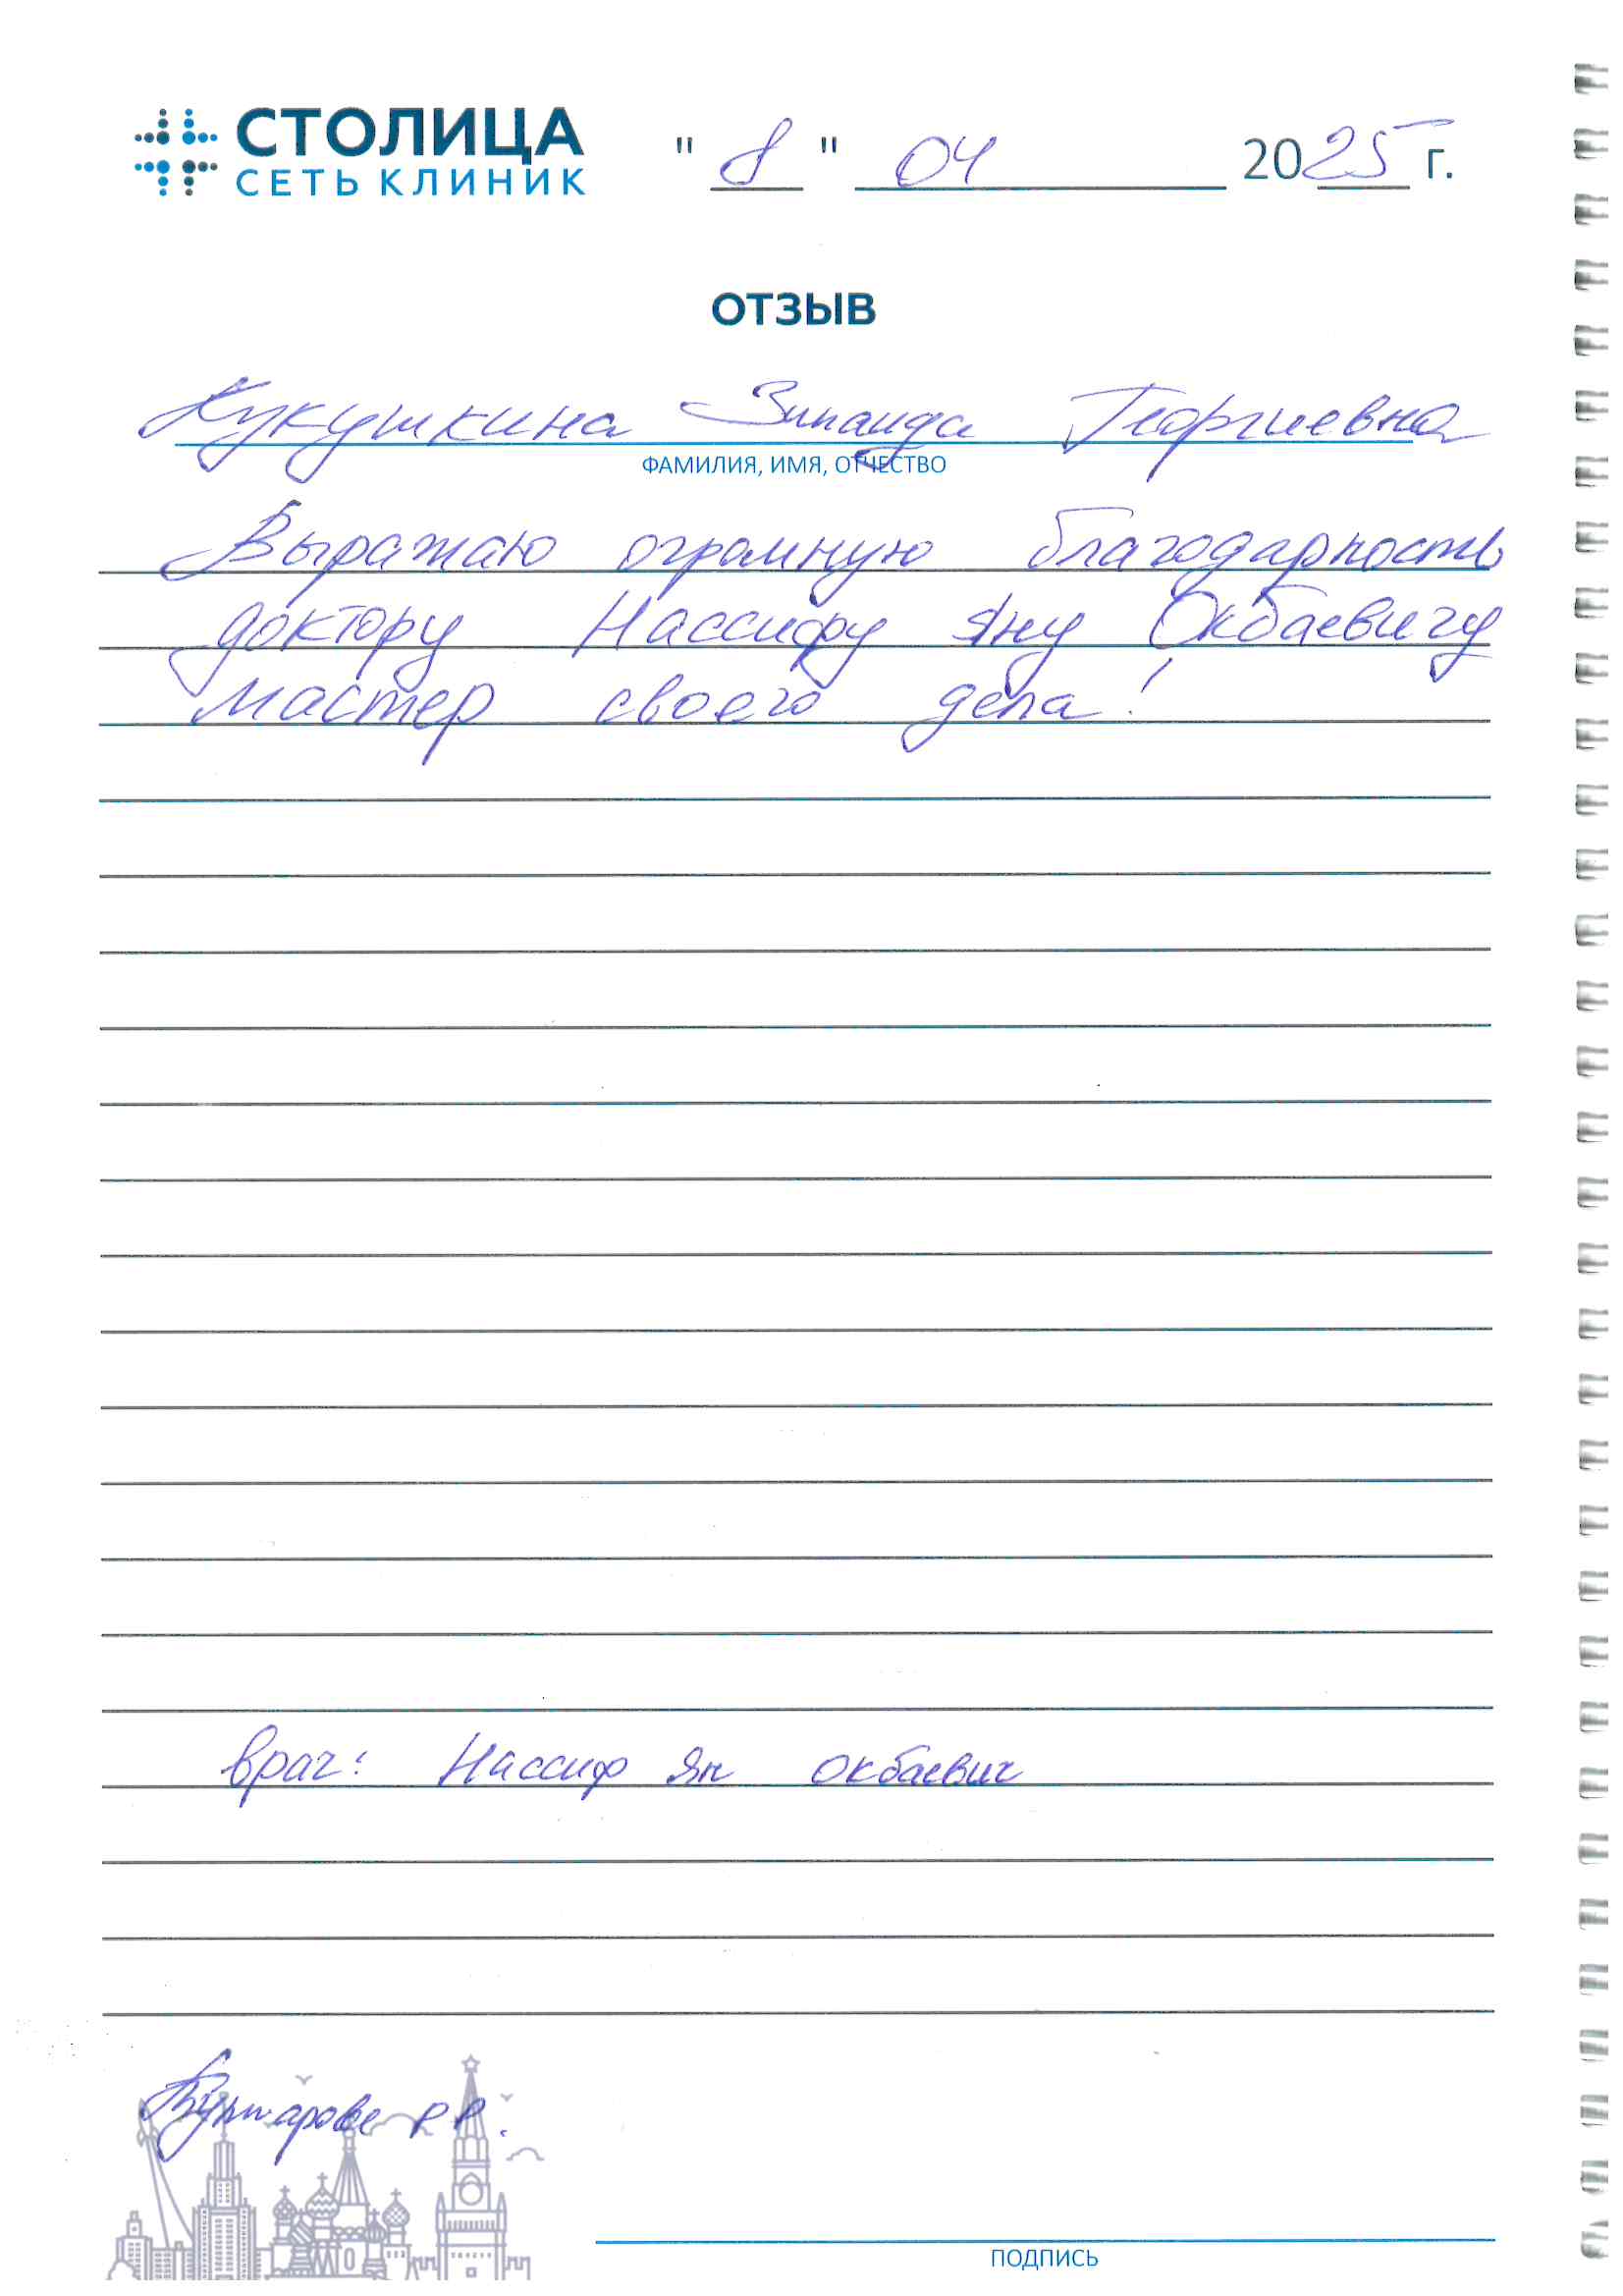 СТОЛИЦА
СЕТЬ КЛИНИК
" 8 " 04 2025 г.
ОТЗЫВ
Кукушкина Зинаида Георгиевна
ФАМИЛИЯ, ИМЯ, ОТЧЕСТВО
Выражаю огромную благодарность
доктору Нассифу Яну Окбаевичу
мастер своего дела!
врач: Нассиф Ян Окбаевич
Р.Р.
ПОДПИСЬ